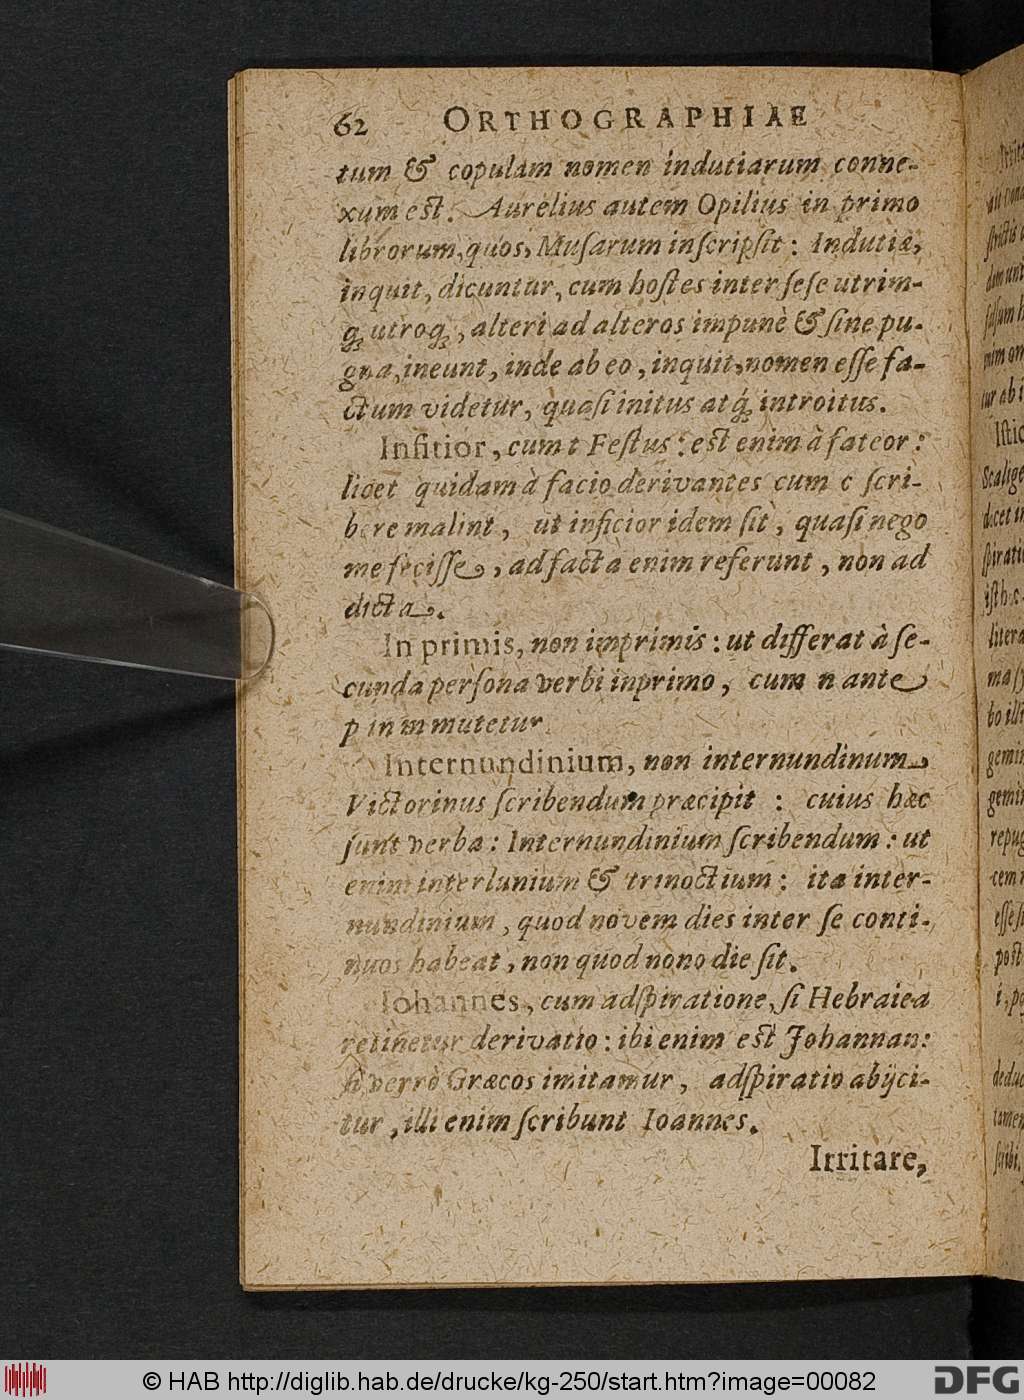 62 ORTHOGRAPHIAE
tum & copulam nomen indutiarum conne-
xum est. Aurelius autem Opilius in primo
librorum, quos, Musarum inscripsit: Indutiæ,
inquit, dicuntur, cum hostes inter sese utrim-
q́ꝫ utroqꝫ, alteri ad alteros impunè & sine pu-
gna, ineunt, inde ab eo, inquit, nomen esse fa-
ctum videtur, quasi initus atq́ꝫ introitus.
Infitior, cum t Festus: est enim à fateor:
licet quidam à facio derivantes cum c scri-
bere malint, ut inficior idem sit, quasi nego
me fecisse, ad facta enim referunt, non ad
dicta.
In primis, non imprimis: ut differat à se-
cunda persona verbi inprimo, cum n ante
p in m mutetur
Internundinium, non internundinum
Victorinus scribendum præcipit: cuius hæc
sunt verba: Internundinium scribendum: ut
enim interlunium & trinoctium: ita inter-
nundinium, quod novem dies inter se conti-
nuos habeat, non quod nono die sit.
Iohannes, cum adspiratione, si Hebraica
retinetur derivatio: ibi enim est Johannan:
si verrò Græcos imitamur, adspiratio abijci-
tur, illi enim scribunt Ioannes.
Irritare,
Istic
© HAB http://diglib.hab.de/drucke/kg-250/start.htm?image=00082
DFG